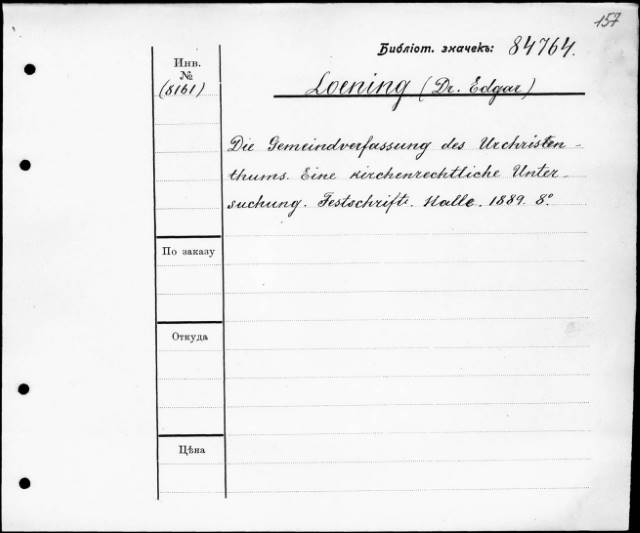 157
Библіот. значекъ: 84764.
Инв.
№
(8161)
Loening (Dr. Edgar)
Die Gemeindverfassung des Urchristen-
thums. Eine kirchenrechtliche Unter-
suchung. Festschrift. Halle. 1889. 8°.
По заказу
Откуда
Цѣна